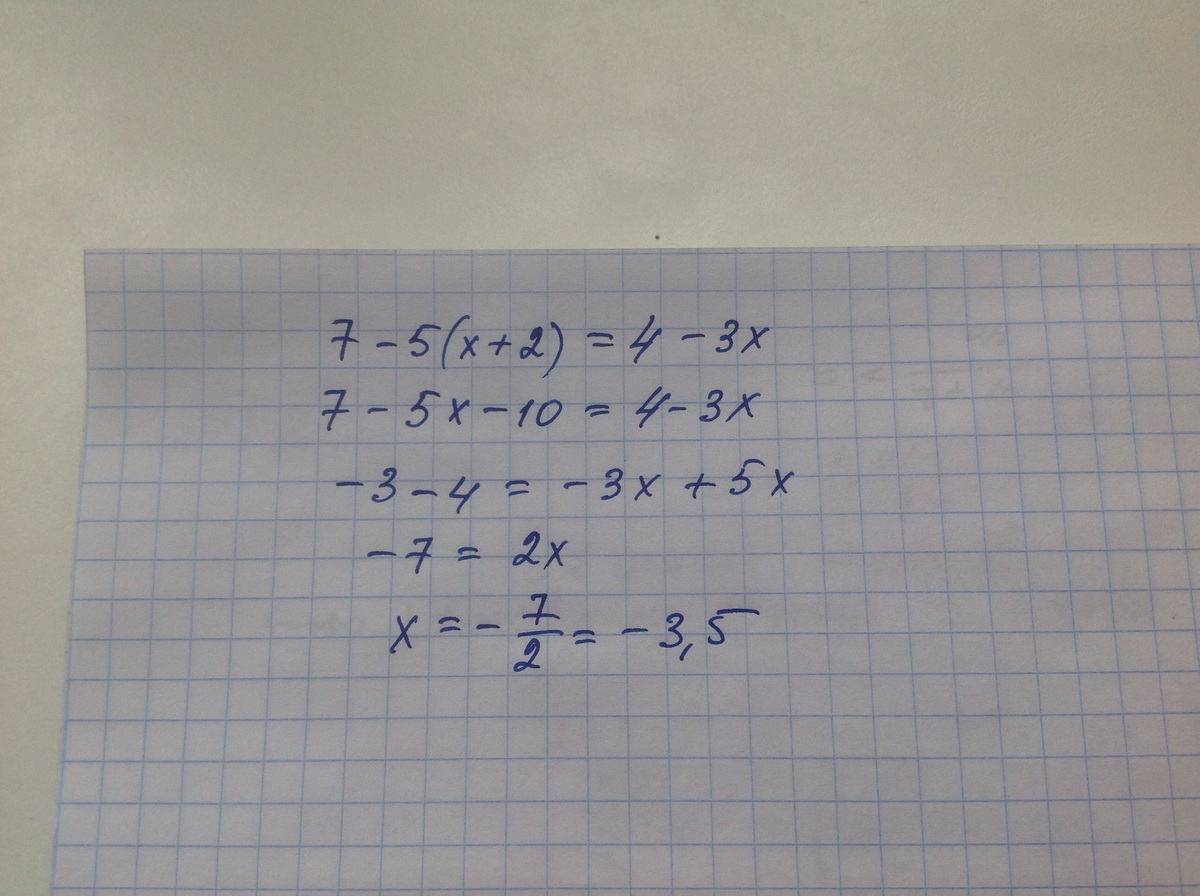 7 - 5(x + 2) = 4 - 3x
7 - 5x - 10 = 4 - 3x
-3 - 4 = -3x + 5x
-7 = 2x
x = - 7/2 = -3,5